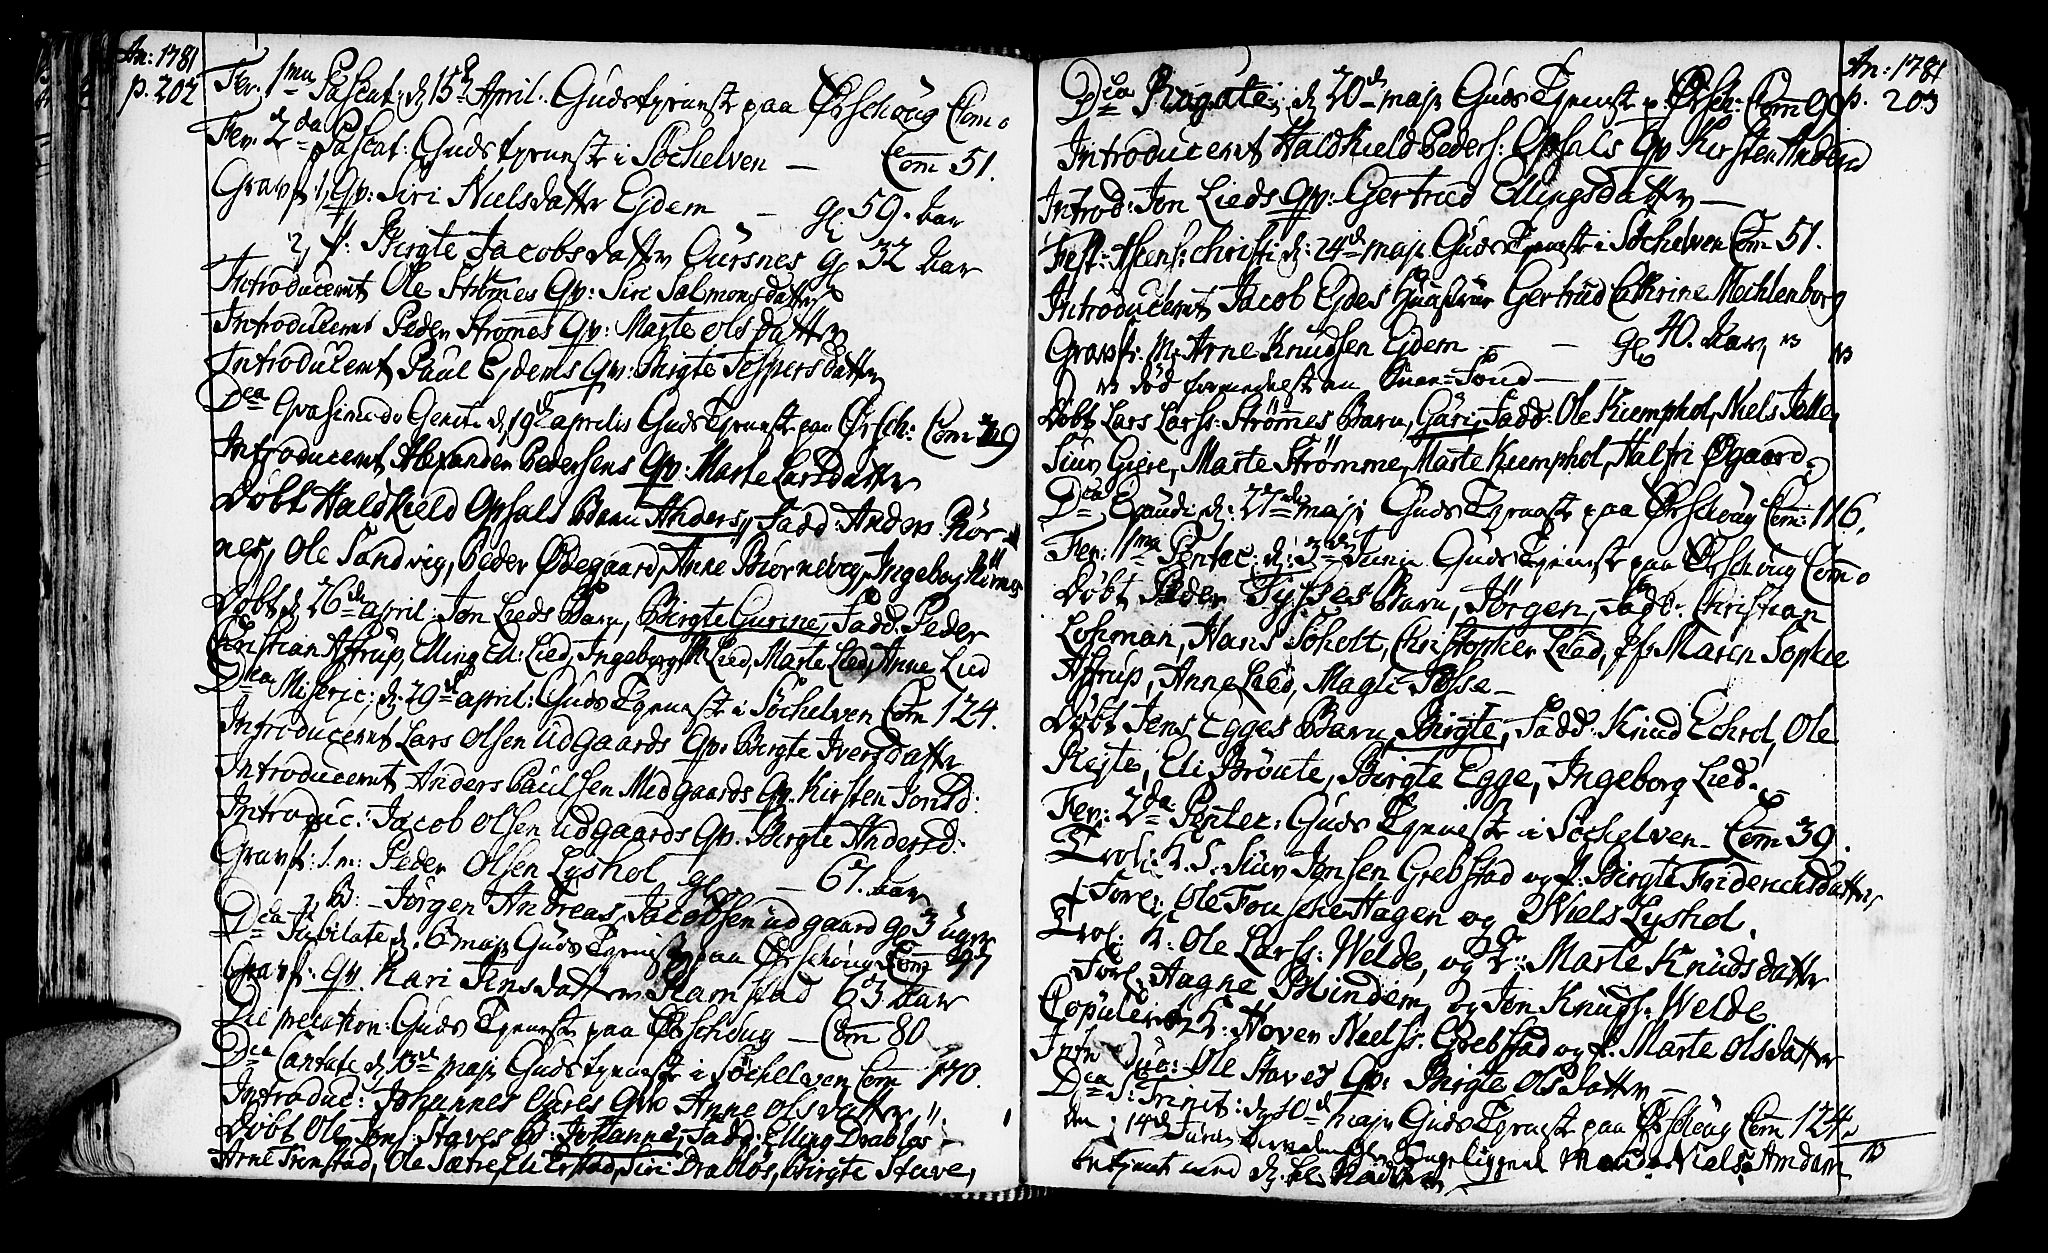 An: 1781
p. 202
Fer: 1ma Pascat: d 15 April. Gudstjenneste paa Ørschoug Com 0
Fer. 2da Pascat: Guds tjenneste i Söchelven — Com 51.
Gravf: 1, Qv: Siri Nielsdatter Ejdem — gl 59. Aar
2, P: Birgte Jacobsdatter Aursnes gl 32 Aar
Introduceret Ole Strömes Qv: Siri Salmonsdatter
Introduceret Peder Strömes Qv: Marte olsdatter
Introduceret Paul Ejdems Qv: Birgte Jespersdatter
Dca Quasimodo Genit: d, aprilis Guds Tjenneste paa Ørsch: Com
Introduceret Alexander Pedersens Qv: Marte Larsdatter
Döbt Haldkield Opsals Barn Anders, Fadd: Anders Rör-
nes, Ole Sandvig, Peder Ødegaard, Anne Biørnevog, Ingeborg
Döbt d 26de april: Jon Lieds Barn, Birgte Gurine, Fadd: Peder
Christian Astrup, Elling El: Lied, Ingeborg Lied, Marte Lied, Anne Lied
Dca Miseric: d: 29de april: Guds Tjenneste i Söchelven Com 124.
Introduceret Lars Olsen Udgaards Qv: Birgte Iversdatter
Introduceret Anders Paulsen Medgaards Qv. Kirsten Jonsd:
Introduc: Jacob olsen udgaards Qv. Birgte Andersd:
Gravf: 1. m: Peder Olsen Lyshol gl — 67. aar
2, B: — Jörgen Andreas Jacobsen udgaard gl 3 uger
Dca Jubilate d. 6 maji Guds Tjenneste paa Ørschoug Com 97
Gravf: Qv Kari Jensdatter Ramstad 63 Aar
Die precation: Guds Tjenneste paa Ørschoug — Com 80
Dca Cantate d 13de maji Guds tjenneste i Söchelven Com 170.
Introduc: Johannes Qv: Anne olsdatter
Döbt Ole Jons: Staves B: Johanne, Fadd: Elling Drablös
Arne Tenstad, Ole Sætre, Eli Erstad, Siri Drablös, Birgte Stave,
An: 1781
p. 203
Dca Rogate; d 20de maji Guds Tjenneste p. Ørsch: Com 90
Introduceret Haldkield Peders: Opsals Qv Kirsten Andersd
Introd: Jon Lieds Qv: Gertrud Ellingsdatter —
Fest: Asscens: Christi d: 24de maji Guds Tjenneste i Söchelven Com 51.
Introduceret Jacob Ejdes Huustrue Gertrud Cathrine Mechlenborg
Gravf: M: Arne Knudsen Ejdem — — gl 40. Aar, NB
NB död formedelst en
Döbt Lars Larss: Strömes Barn, Guri, Fadd: Ole Kiemphol, Niels Jelle,
Siur Gjere, Marte Strömme, Marte Kiemphol, Halfri Øgaard
Dca Exaudi d: 27de maji Guds Tjenneste paa Ørschoug Com: 116.
Fer: 1ma Pentec: d: 3de Junii Guds Tjenneste paa Ørschoug Com 0
Döbt Peder Tysses Barn, Jörgen, Fadd: Christian
Lohman, Hans Soholt, Christopher Lied, Jfr Maren Sophie
Astrup, Anne Lied, Magli Tysse —
Döbt Jens Egges Barn Birgte, Fadd: Knud Echrol, Ole
Rejte, Eli Brönte, Birgte Egge, Ingeborg Lied. —
Fer: 2da Pentec: Guds Tjenneste i Söchelven — Com 39.
Trol: K. S. Siur Jensen Grebstad og P: Birgte Friderichsdatter
Forl: Ole Hagen og Niels Lyshol.
Trol: K: Ole Larss: Welde, og P: Marte Knudsdatter
Forl: Aagne Blindem, og Jon Knuds: Welde
Copuleret K: Hoven Neels: Grebstad og P: Marte olsdatter
Introduc: Ole Staves Qv: Birgte olsdatter —
Dca S: Trinit: d, 10de maji Guds Tjenneste paa Ørschoug Com 124.
den 14de Junii Niels Amdam
betjent med d.